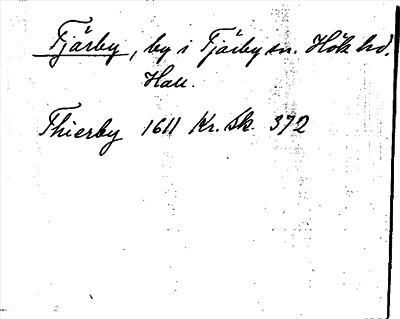 Tjärby, by i Tjärby sn. Hök hd.
Hall.
Thierby 1611 Kr. Sk. 372